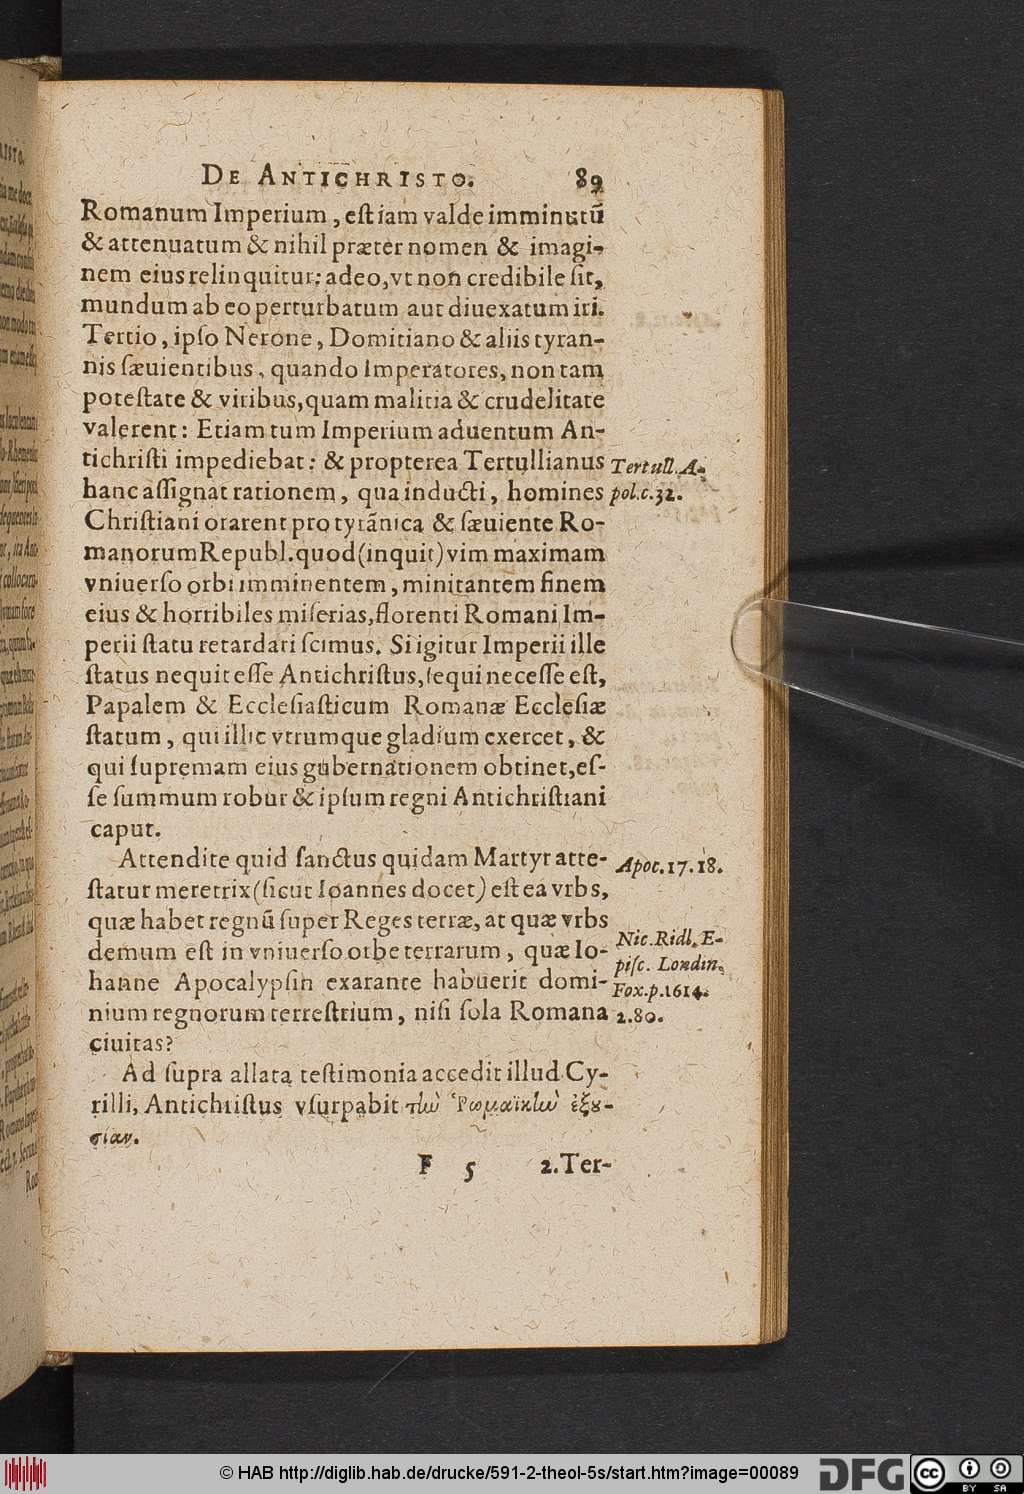 DE ANTICHRISTO. 89
Romanum Imperium, eſt iam valde imminutũ
& attenuatum & nihil præter nomen & imagi-
nem eius relinquitur: adeo, vt non credibile ſit,
mundum ab eo perturbatum aut diuexatum iri.
Tertio, ipſo Nerone, Domitiano & aliis tyran-
nis ſæuientibus, quando Imperatores, non tam
poteſtate & viribus, quam malitia & crudelitate
valerent: Etiam tum Imperium aduentum An-
tichriſti impediebat: & propterea Tertullianus
Tertull. A-
hanc aſſignat rationem, qua inducti, homines
pol.c.32.
Chriſtiani orarent pro tyrãnica & ſæuiente Ro-
manorum Republ. quod (inquit) vim maximam
vniuerſo orbi imminentem, minitantem finem
eius & horribiles miſerias, florenti Romani Im-
perii ſtatu retardari ſcimus. Si igitur Imperii ille
ſtatus nequit eſſe Antichriſtus, ſequi neceſſe eſt,
Papalem & Eccleſiaſticum Romanæ Eccleſiæ
ſtatum, qui illic vtrumque gladium exercet, &
qui ſupremam eius gubernationem obtinet, eſ-
ſe ſummum robur & ipſum regni Antichriſtiani
caput.
Attendite quid ſanctus quidam Martyr atte-
Apoc.17.18.
ſtatur meretrix (ſicut Ioannes docet) eſt ea vrbs,
quæ habet regnũ ſuper Reges terræ, at quæ vrbs
Nic. Ridl. E-
demum eſt in vniuerſo orbe terrarum, quæ Io-
piſc. Londin.
hanne Apocalypſin exarante habuerit domi-
Fox.p.1614.
nium regnorum terreſtrium, niſi ſola Romana
2.80.
ciuitas?
Ad ſupra allata teſtimonia accedit illud Cy-
rilli, Antichriſtus vſurpabit τὴν Ῥωμαϊκὴν ἐξου-
σίαν.
F 5 2.Ter-
© HAB http://diglib.hab.de/drucke/591-2-theol-5s/start.htm?image=00089
DFG
cc
BY SA